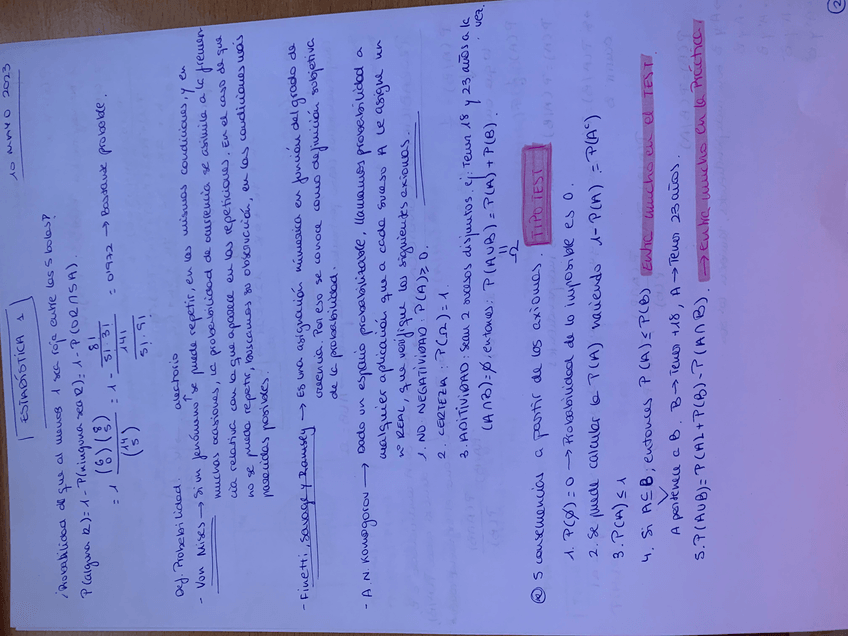 10 MAYO 2023
ESTADÍSTICA 1
¿Probabilidad de que al menos 1 sea roja entre las 5 bolas?
P(alguna R) = 1 - P(ninguna sea R) = 1 - P(0R∩5A).
= 1 - (6 0)(8 5) / (14 5) = 1 - 8! / 5! 3! / 14! / 5! 9! = 0'972 → Bastante probable.
Def Probabilidad:
aleatorio
- Von Mises → Si un fenómeno se puede repetir, en las mismas condiciones, y en
muchas ocasiones, la probabilidad de ocurrencia se asimila a la frecuen
cia relativa con la que aparece en las repeticiones. En el caso de que
no se pueda repetir, buscamos su observación, en las condiciones más
parecidas posibles.
- Finetti, Savage y Ramsey → Es una asignación numérica en función del grado de
creencia. Por eso se conoce como definición subjetiva
de la probabilidad.
- A.N. Komogorov → Dado un espacio probabilizable, llamamos probabilidad a
cualquier aplicación que a cada suceso A le asigne un
nº REAL, que verifique los siguientes axiomas.
1. NO NEGATIVIDAD: P(A) ≥ 0.
2. CERTEZA: P(Ω) = 1.
3. ADITIVIDAD: sean 2 sucesos disjuntos. ej: Tener 18 y 23 años a la vez.
(A∩B) = ∅, entonces: P(A∪B) = P(A) + P(B).
= Ω
5 consecuencias a partir de los axiomas. TIPO TEST
1. P(∅) = 0 → Probabilidad de lo imposible es 0.
2. Se puede calcular la P(A) haciendo 1 - P(A) = P(Aᶜ)
3. P(A) ≤ 1
4. Si A⊆B; entonces P(A) ≤ P(B) Entra mucho en el TEST
A pertenece a B. B → Tener +18, A → Tener 23 años.
5. P(A∪B) = P(A) + P(B) - P(A∩B). → entra mucho en la práctica
2